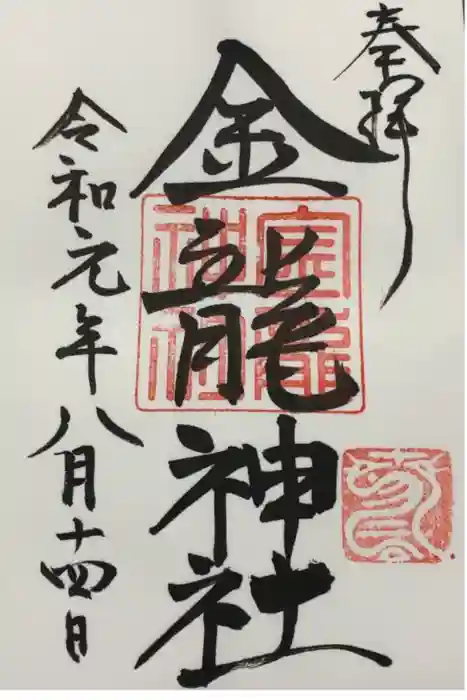 奉拝
金龍神社
令和元年八月十四日